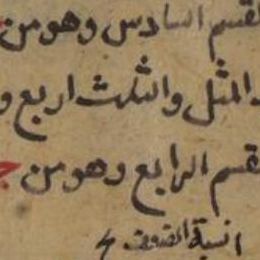 لقسم السادس وهو من
المثل والثلث اربع و
لقسم الرابع وهو من
نسبة الضعف